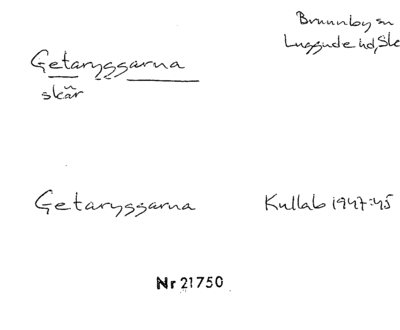 Brunnby sn
Luggude hd, Sk
Getaryggarna
skär
Getaryggarna
Kullab 1947:45
Nr 21750